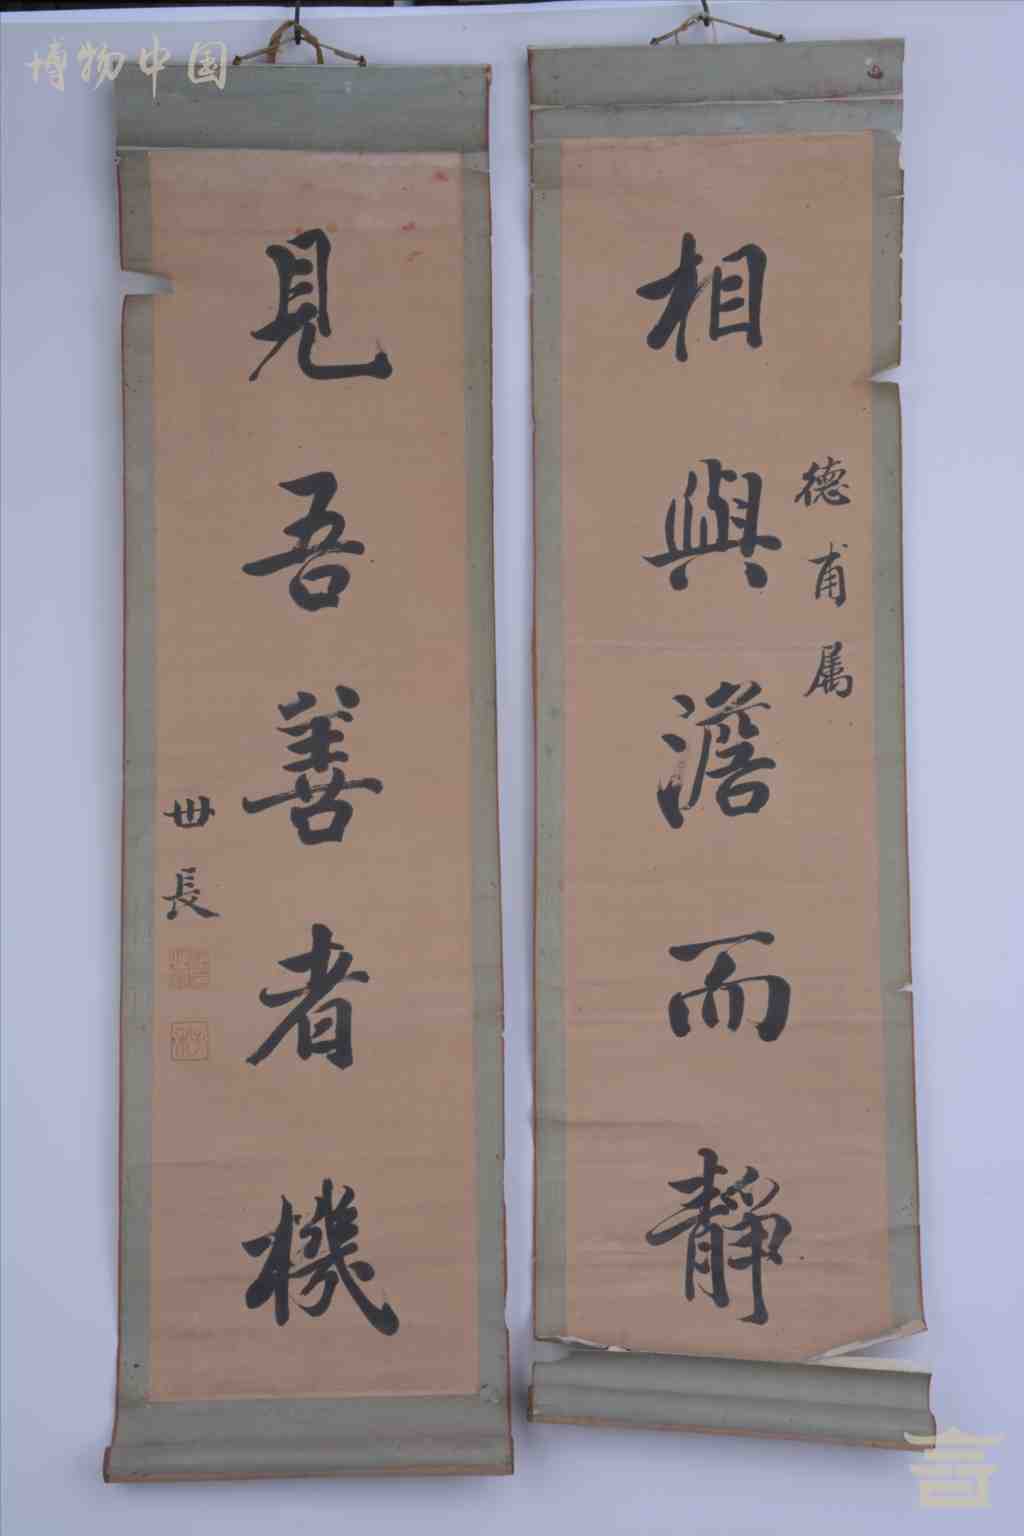 博物中国
相與澹而靜
德甫属
見吾善者機
世長